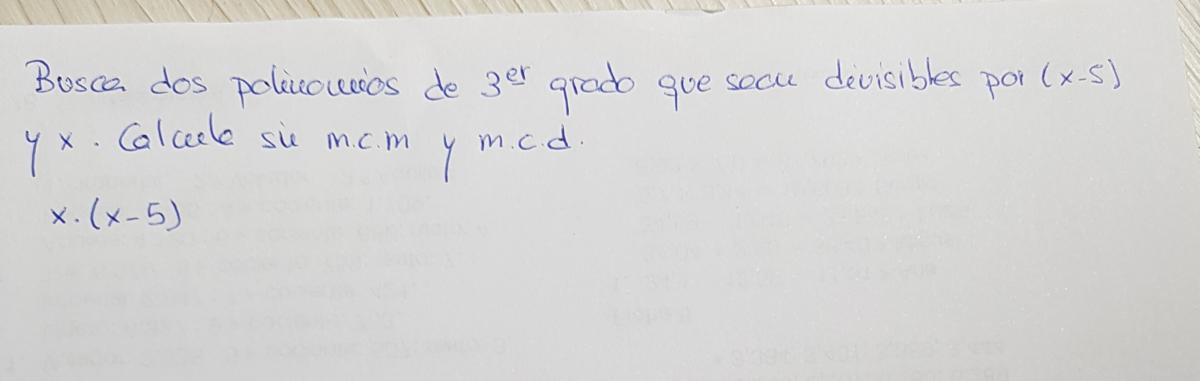 Busca dos polinomios de 3er grado que sean divisibles por (x-5)
y x. Calcula su m.c.m y m.c.d.
x.(x-5)